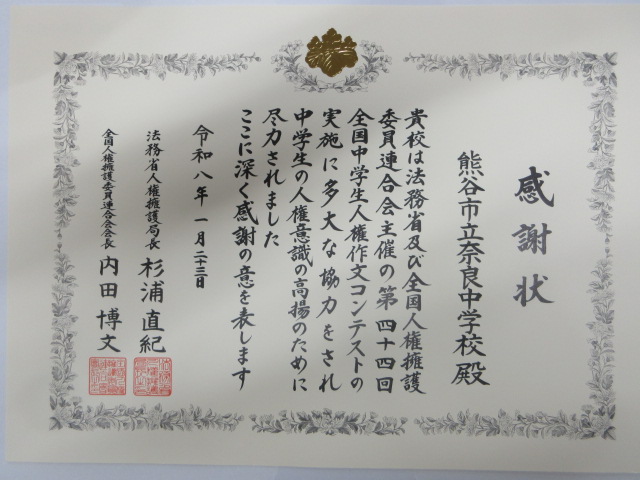 感謝状
熊谷市立奈良中学校殿
貴校は法務省及び全国人権擁護
委員連合会主催の第四十四回
全国中学生人権作文コンテストの
実施に多大な協力をされ
中学生の人権意識の高揚のために
尽力されました
ここに深く感謝の意を表します
令和八年一月二十三日
法務省人権擁護局長 杉浦直紀
全国人権擁護委員連合会会長 内田博文